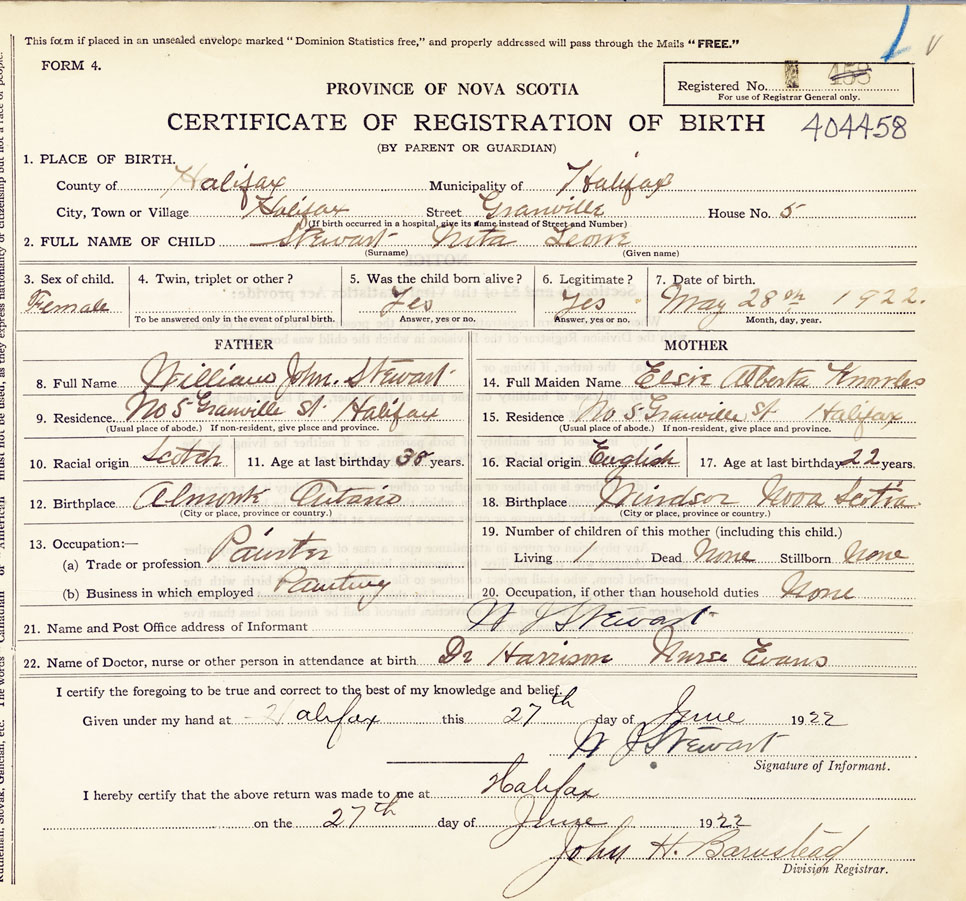 This form if placed in an unsealed envelope marked "Dominion Statistics free," and properly addressed will pass through the Mails "FREE."
FORM 4.
Registered No. 458
For use of Registrar General only.
PROVINCE OF NOVA SCOTIA
CERTIFICATE OF REGISTRATION OF BIRTH 404458
(BY PARENT OR GUARDIAN)
1. PLACE OF BIRTH.
County of Halifax Municipality of Halifax
City, Town or Village Halifax Street Granville House No. 5
(If birth occurred in a hospital, give its name instead of Street and Number)
2. FULL NAME OF CHILD Stewart Nita Leone
(Surname) (Given name)
3. Sex of child. 4. Twin, triplet or other? 5. Was the child born alive? 6. Legitimate? 7. Date of birth.
Female Yes Yes May 28th 1922.
To be answered only in the event of plural birth. Answer, yes or no. Answer, yes or no. Month, day, year.
FATHER MOTHER
8. Full Name William John. Stewart 14. Full Maiden Name Elsie Alberta Knowles
9. Residence No 5 Granville St. Halifax 15. Residence No 5 Granville St Halifax
(Usual place of abode.) If non-resident, give place and province. (Usual place of abode.) If non-resident, give place and province.
10. Racial origin Scotch 11. Age at last birthday years. 16. Racial origin English 17. Age at last birthday 22 years.
12. Birthplace Almonte Ontario 18. Birthplace Windsor Nova Scotia
(City or place, province or country.) (City or place, province or country.)
13. Occupation:— 19. Number of children of this mother (including this child.)
(a) Trade or profession Painter Living 1 Dead None Stillborn None
(b) Business in which employed Painting 20. Occupation, if other than household duties None
21. Name and Post Office address of Informant W J Stewart
22. Name of Doctor, nurse or other person in attendance at birth Dr Harrison Nurse Evans
I certify the foregoing to be true and correct to the best of my knowledge and belief.
Given under my hand at Halifax this 27th day of June 1922
W J Stewart
Signature of Informant.
I hereby certify that the above return was made to me at Halifax
on the 27th day of June 1922
John H. Barnstead
Division Registrar.